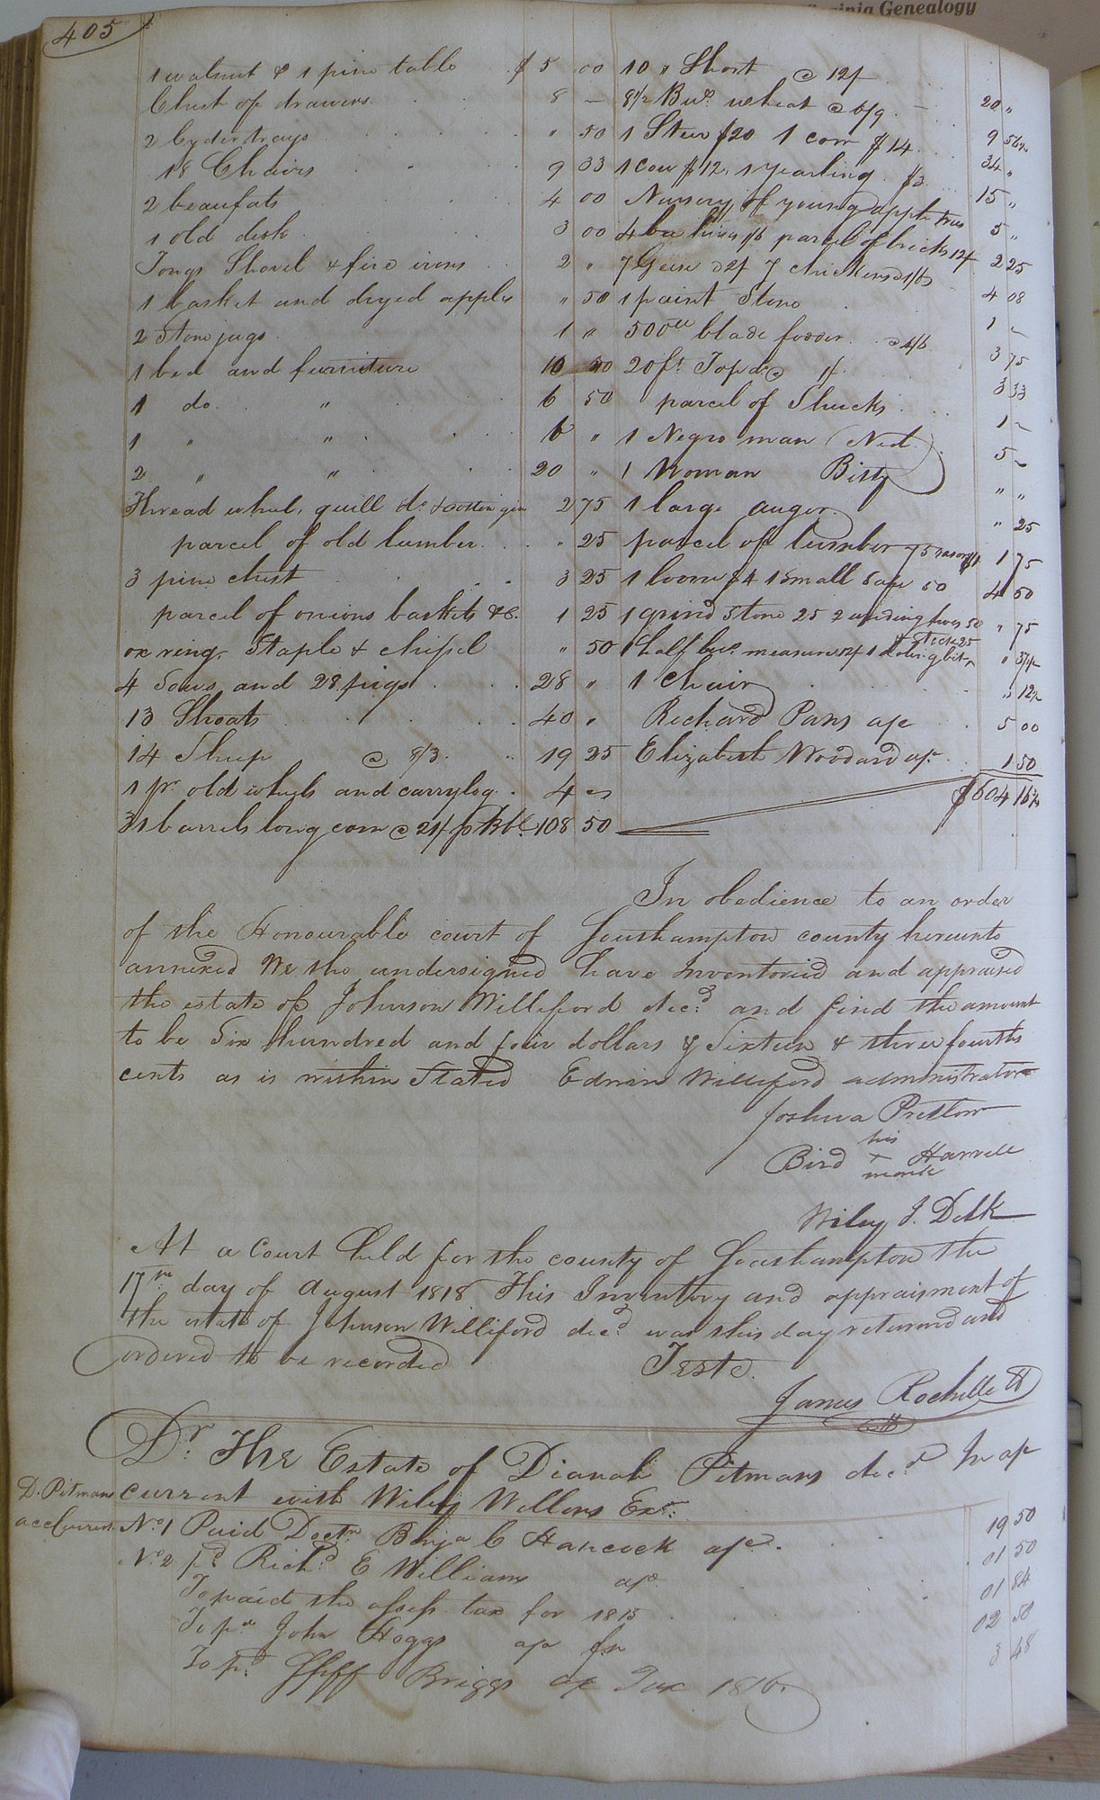 Virginia Genealogy
405
1 walnut & 1 pine table $ 5 00
Chest of drawers 8 —
2 Cyder trays " 50
18 Chairs 9 33
2 beaufats 4 00
1 old desk 3 00
Tongs Shovel & fire irons 2 "
1 basket and dryed apples " 50
2 Stone jugs 1 "
1 bed and furniture 10 00
1 do " 6 50
1 " " 6 "
2 " " 20 "
Thread wheel, quill do & cotton gin 2 75
parcel of old lumber " 25
3 pine chest 3 25
parcel of onions baskets &c. 1 25
ox ring, Staple & chissel " 50
4 Sows and 28 pigs 28 "
13 Shoats 40 "
14 Sheep @ 8/3 19 25
1 pr old wheels and carrylog 4 "
31 barrels long corn @ 21/ p bbl 108 50
10 " Short @ 12/ 20 "
8½ Bus. wheat @ 6/9 9 56¼
1 Steer $20 1 cow $14 34 "
1 cow $12, 1 yearling $3 15 "
Nursery of young apple trees 5 "
4 bee hives 1/6 parcel of bricks 12/ 2 25
7 Geese 2/ 7 chickens 4 08
1 paint Stone 1 —
500 lb blade fodder @ 4/6 3 75
20 ft. Top do @ 1/ 3 33
parcel of Shucks 1 —
1 Negro man (Ned) 5 —
1 Woman Bitty " "
1 large auger " 25
parcel of lumber 1 75
1 loom $4 1 Small Saw 50 4 50
1 grind Stone 25 2 weeding hoes 50 " 75
1 half bus. measure
1 Chair
Richard Pan's a/c 5 00
Elizabeth Woodard a/c 1 50
$604 16¾
In obedience to an order
of the Honourable court of Southampton county hereunto
annexed We the undersigned have Inventoried and appraised
the estate of Johnson Williford decd. and find the amount
to be Six hundred and four dollars & Sixteen & three fourths
cents as is within Stated Edwin Williford administrator
Joshua Pretlow
his
Bird + Harvell
mark
Wiley J. Delk
At a Court Held for the county of Southampton the
17th day of August 1818 This Inventory and appraisment of
the estate of Johnson Williford decd. was this day returned and
ordered to be recorded Teste.
James Rochelle
Dr. The Estate of Dianah Pitman decd. In a/c
current with Wiley Wellons Exr.
D. Pitmans
acct Current
No. 1 Paid Doctr. Benja C Hancock a/c. 19 50
No. 2 pd Richd E Williams a/c 01 50
To paid the assess tax for 1815 01 84
To pd John Hoggs a/c 02 50
To pd. Shff Briggs Tax 1816 3 48